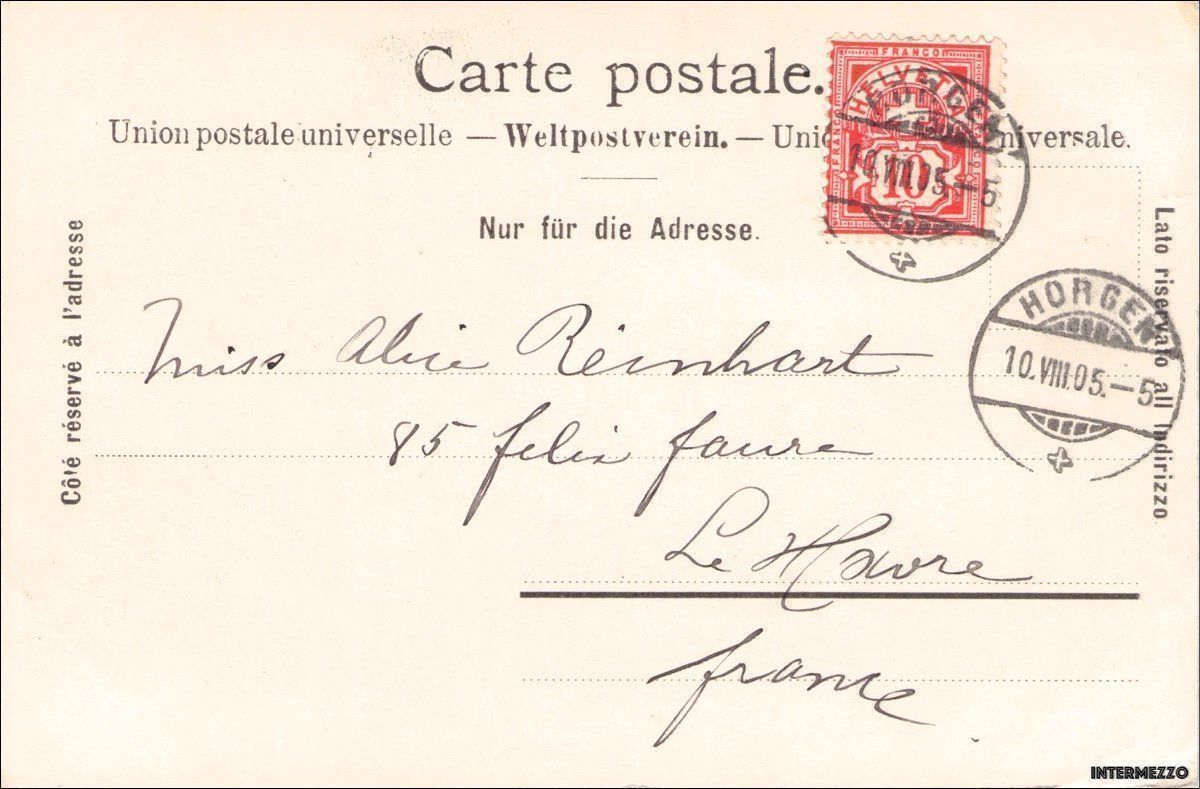 Carte postale.
Union postale universelle — Weltpostverein. — Unio niversale.
Nur für die Adresse.
FRANCO
HELVETIA
10
HORGEN
10.VIII.05.–5
HORGEN
10.VIII.05.–5
Côté réservé à l'adresse
Lato riservato all Indirizzo
Miss Alice Reinhart
85 felix faure
Le Havre
france
INTERMEZZO